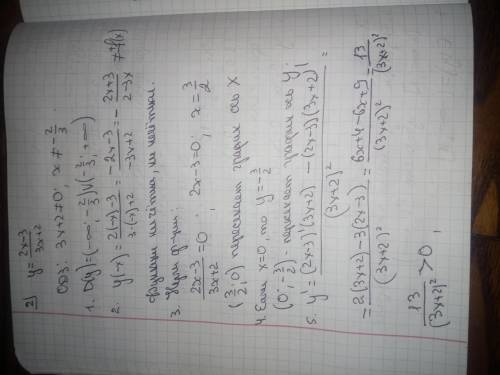 2) y = (2x-3)/(3x+2)
ОДЗ: 3x+2≠0; x ≠ -2/3
1. D(y)=(-∞; -2/3)∪(-2/3; +∞)
2. y(-x) = (2(-x)-3)/(3·(-x)+2) = (-2x-3)/(-3x+2) = -(2x+3)/(2-3x) ≠ f(x)
Функция не чётна, ни нечётная.
3. Нули ф-ции:
(2x-3)/(3x+2) = 0, 2x-3=0; x = 3/2
(3/2; 0) пересекает график ось x
4. Если x=0, то y = -3/2
(0; -3/2) - пересекает график ось y
5. y' = ((2x-3)'(3x+2) - (2x-3)(3x+2)')/(3x+2)² =
= (2(3x+2) - 3(2x-3))/(3x+2)² = (6x+4-6x+9)/(3x+2)² = 13/(3x+2)²
13/(3x+2)² > 0,